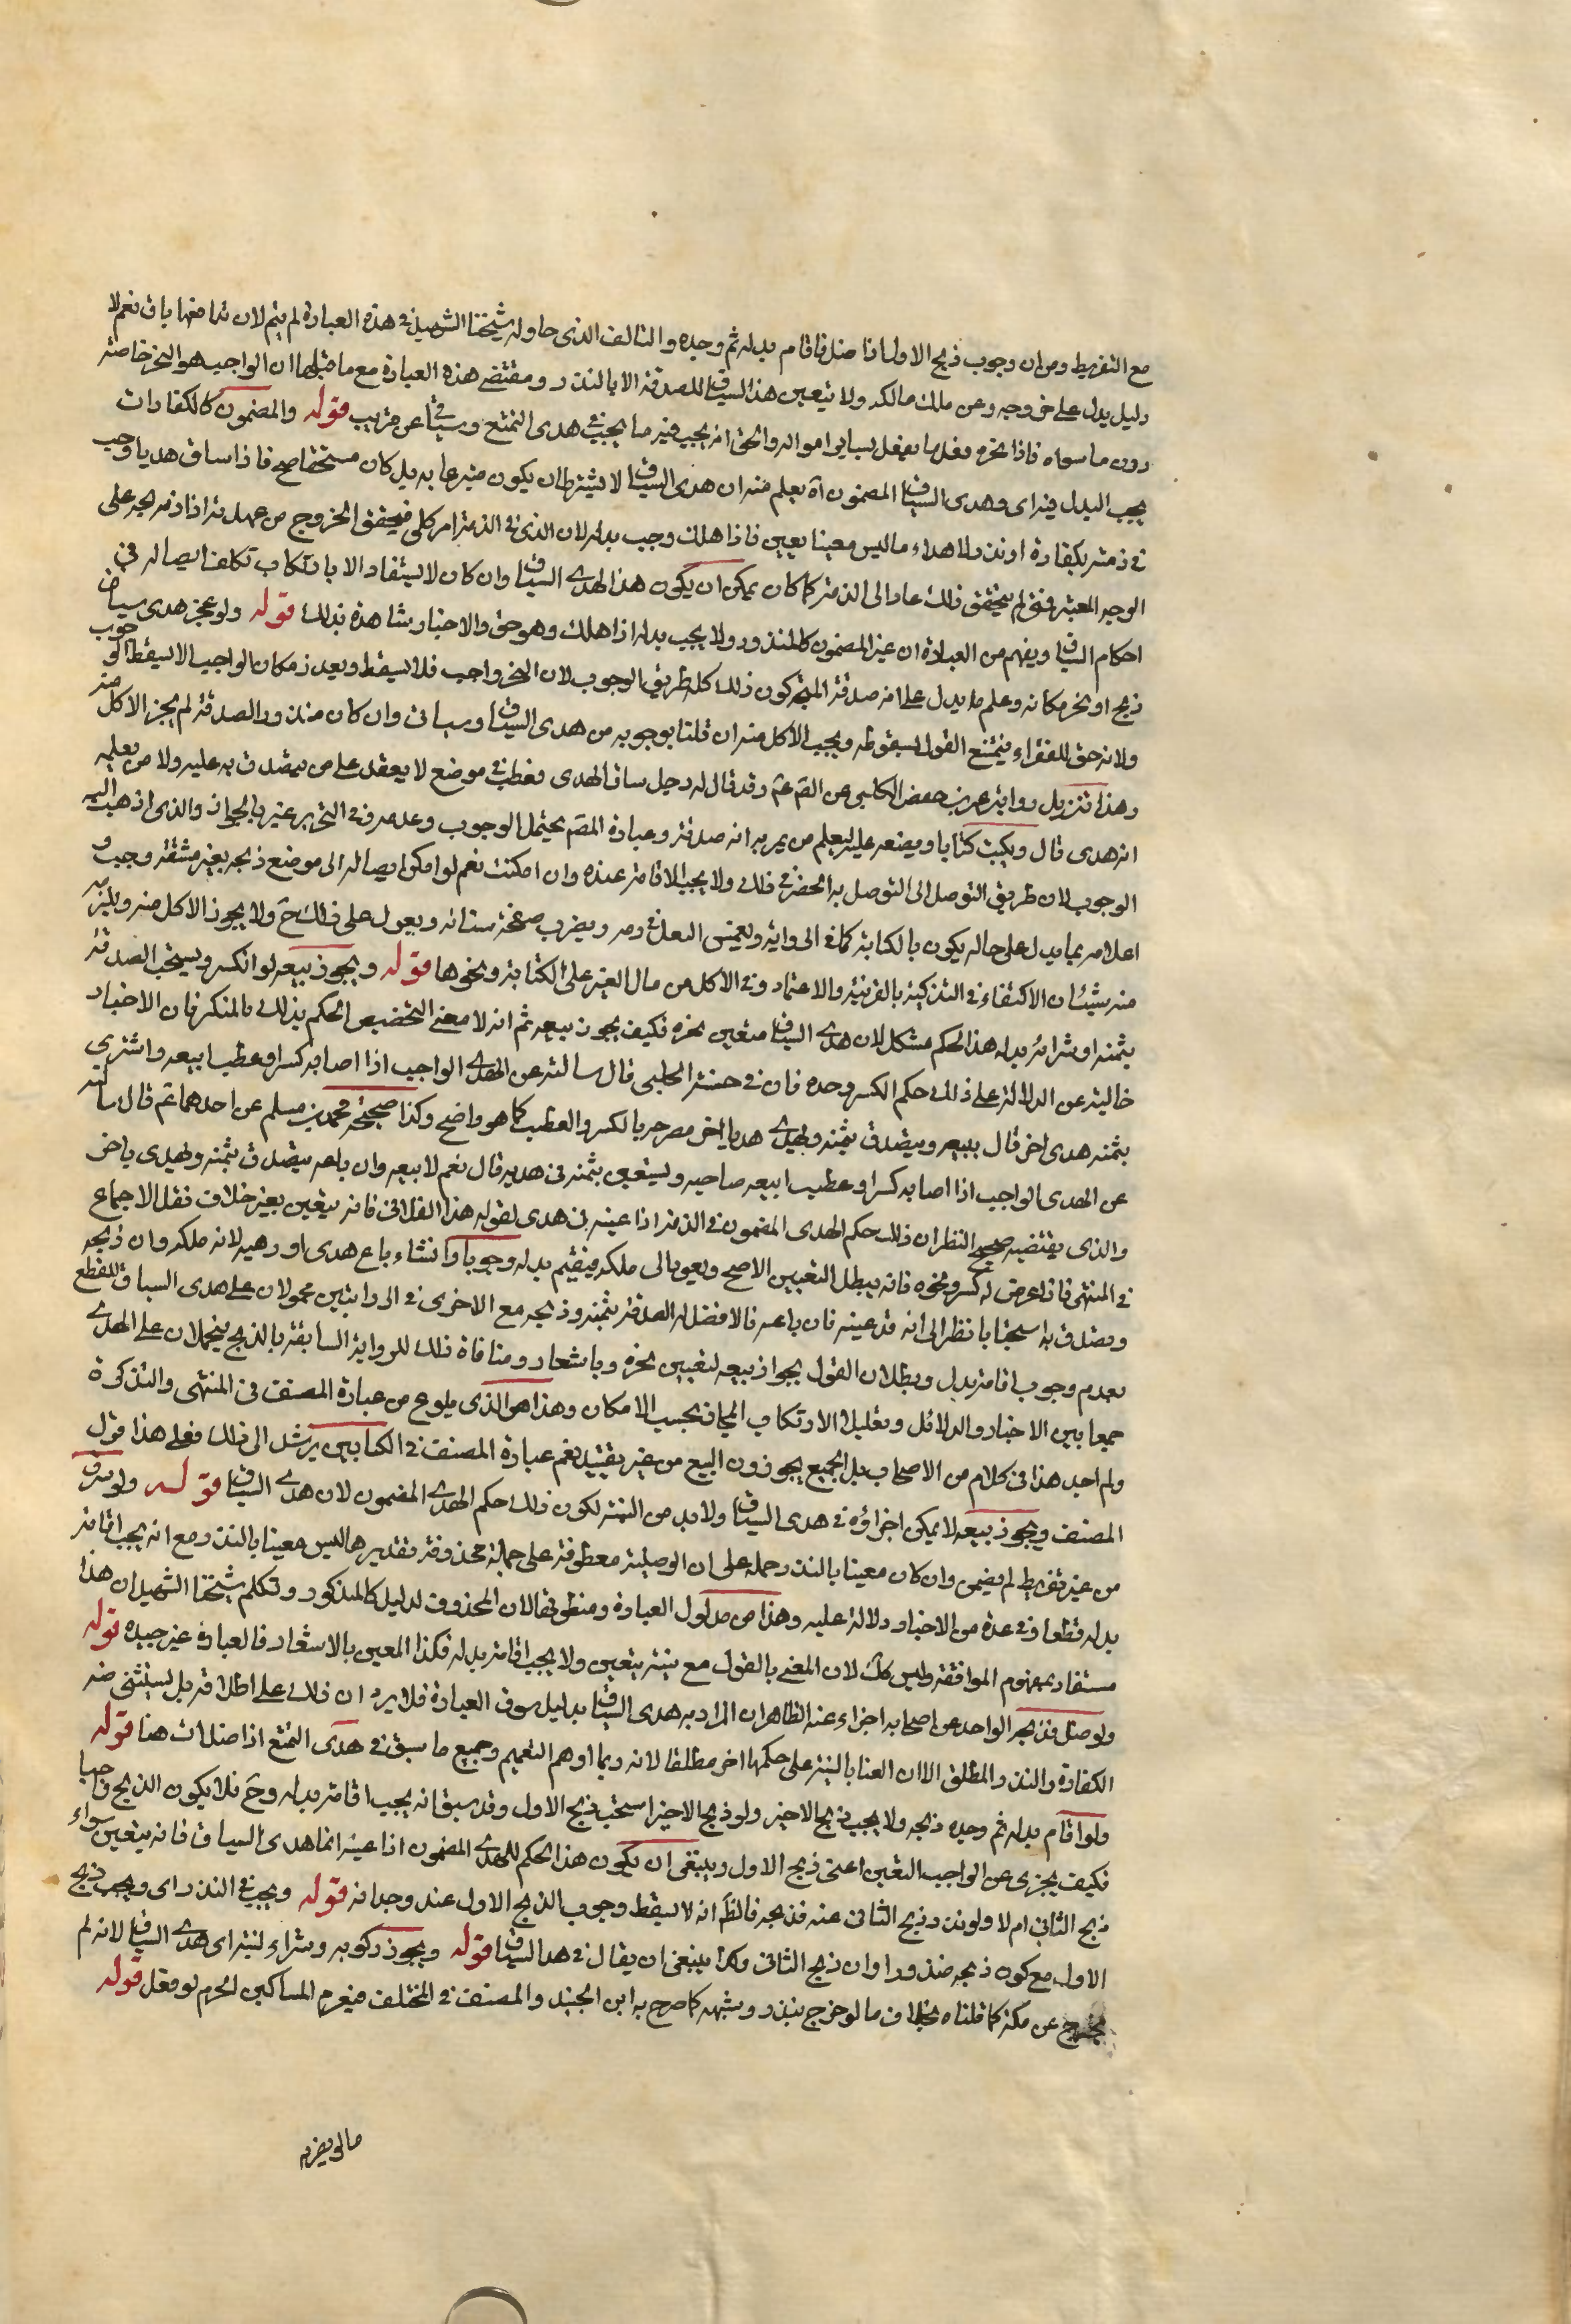 مع التفريط ومن ان وجوب ذبح الاول اذا ضل فاقام بدله ثم وجده والتالف الذى حاوله شيخنا الشهيد فى هذه العبارة لم يتم لان نعم لا
دليل يدل على خروجه وعن ملك مالكه ولا يتعين هذا السياق للصدقة الا بالنذر ومقتضى هذه العبارة مع ما قبلها ان الواجب هو النحر خاصة
دون ما سواه فاذا نحره فعل ما يفعل بساير امواله والحق انه يجب فيه ما يجب فى هدى التمتع وسياتى عن قريب قوله والمضمون كالكفارات
يجب البدل فيه اى وهدى السياق المضمون اه يعلم منه ان هدى السياق لا يشترط ان يكون متبرعا به بل كان مستحقا صح فاذا ساق هديا وجب
فى ذمته بكفارة او نذر ولا هداء ما ليس معينا تعين فاذا هلك وجب بدله لان الذى فى الذمة امر كلى فيتحقق الخروج من عهدته اذا ذبحه على
الوجه المعتبر فمتى لم يتحقق ذلك عاد الى الذمة كما كان يمكن ان يكون هذا الهدى السياق وان كان لا يستفاد الا بارتكاب تكلف ايصاله فى
احكام السياق ويفهم من العبارة ان غير المضمون كالمنذور ولا يجب بدله اذا هلك وهو حق والاخبار شاهدة بذلك قوله ولو عجز هدى سياق
ذبح او نحر مكانه وعلم ما يدل على انه صدقة المتجه كون ذلك كله طريق الوجوب لان النحر واجب فلا يسقط وتعدد مكان الواجب لا يسقط الوجوب
ولانه حق للفقراء فيمتنع القول بسقوطه ويجب الاكل منه ان قلنا بوجوبه من هدى السياق وسياتى وان كان منذور الصدقة لم يجز الاكل منه
وهذا تنزيل رواية عمر بن حفص الكلبى عن الصم عم وقد قال له رجل ساق الهدى فعطب فى موضع لا يقدر على من يتصدق به عليه ولا من يعلمه
انه هدى قال ويكتب كتابا ويضعه عليه ليعلم من يمر به انه صدقة وعبارة المصم يحتمل الوجوب وعدمه وفى التحرير عبر بالجواز والذى اذهب اليه
الوجوب لان طريق التوصل الى التوصل به انحصر فى ذلك ولا يجب الاقامة عنده وان امكنت نعم لو امكن ايصاله الى موضع ذبحه بغير مشقة وجب و
اعلامه بما يدل على حاله يكون بالكتابة كما فى الرواية وبغمس النعل فى دمه ويضرب صفحة سنامه ويعول على ذلك ح ولا يجوز الاكل منه ويلزمه
منه شيئان الاكتفاء فى التذكية بالقرينة والاعتماد وفى الاكل من مال الغير على الكتابة ونحوها قوله ويجوز بيعه لو انكسر ويستحب الصدقة
بثمنه او شراء بدله هذا الحكم مشكل لان هدى السياق متعين نحره فكيف يجوز بيعه ثم انه لا معنى لتخصيص الحكم بذلك بالمنكر فان الاخبار
خالية عن الدلالة على ذلك حكم الكسر وحده فان فى حسنة الحلبى قال سالته عن الهدى الواجب اذا اصابه كسر او عطب ايبيعه واشترى
بثمنه هدى اخر قال يبيعه ويتصدق بثمنه ويهدى هديا اخر مصرحه بالكسر والعطب كما هو واضح وكذا صحيحة محمد بن مسلم عن احدهما عم قال سالته
عن الهدى الواجب اذا اصابه كسر او عطب ايبيعه صاحبه ويستعين بثمنه فى هديه قال نعم لا يبيعه وان باعه يتصدق بثمنه ويهدى باخر
والذى يقتضيه صحيح النظر ان ذلك حكم الهدى المضمون فى الذمة اذا عينه فى هدى لقوله هذا الفلانى فانه يتعين بغير خلاف نقل الاجماع
فى المنتهى فاذا عرض له كسر ونحوه فانه يبطل التعيين الاصح ويعود الى ملكه فيقيم بدله وجوبا وان شاء باع هدى او رهنه لانه ملكه وان ذبحه
وتصدق به استحبابا نظرا الى انه قد عينه فان باعه فالافضل له الصدقة بثمنه وذبحه مع الاخرى فى الروايتين محمولان على هدى السياق للقطع
بعدم وجوب اقامة بدل وبطلان القول بجواز بيعه لتعيين نحره وباشعار ومنافاة ذلك للرواية السابقة بالذبح فيحملان على الهدى
جمعا بين الاخبار والدلائل وتقليل الارتكاب المجاز بحسب الامكان وهذا هو الذى يلوح من عبارة المصنف فى المنتهى والتذكرة
ولم اجد هذا فى كلام من الاصحاب بل الجميع يجوزون البيع من غير تقييد نعم عبارة المصنف فى الكتابين يرشد الى ذلك فعلى هذا قول
المصنف ويجوز بيعه لا يمكن اجزاؤه فى هدى السياق ولا بد من التنبه لكون ذلك حكم الهدى المضمون لان هدى السياق قوله ولو سرق
من غير تفريط لم يضمن وان كان معينا بالنذر حمله على ان الوصلية معطوفة على جملة محذوفة تقديرها ليس معينا بالنذر مع انه يجب اقامة
بدله قطعا وفى عدة من الاخبار دلالة عليه وهذا من مدلول العبارة ومنطوقها لان المحذوف لدليل كالمذكور وتكلم شيخنا الشهيد ان هذا
مستفاد بمفهوم الموافقة وليس كك لان المعنى بالقول مع نيته يتعين ولا يجب اقامة بدله فكذا المعين بالاشعار فالعبارة غير جيدة قوله
ولو ضل فذبحه الواجد عن صاحبه اجزاء عنه الظاهر ان المراد به هدى السياق بدليل سوق العبارة فلا يرد ان ذلك على اطلاقه بل يستثنى منه
الكفارة والنذر والمطلق الا ان العنا بالنية على حكمها اخر مطلقا لانه ربما اوهم التعميم وجميع ما سبق فى هدى التمتع اذا ضل ات هنا قوله
ولو اقام بدله ثم وجده ذبحه ولا يجب ذبح الاخير ولو ذبح الاخير استحب ذبح الاول وقد سبق انه يجب اقامة بدله وح فلا يكون الذبح واجبا
فكيف يجزى عن الواجب التعين اعنى ذبح الاول وينبغى ان يكون هذا الحكم للهدى المضمون اذا عينه انما هدى السياق فانه يتعين سواء
ذبح الثانى ام لا ولو نذر ذبح الثانى عنه فذبحه فالظ انه لا يسقط وجوب الذبح الاول عند وجدانه قوله ويجب فى النذر اى ويجب ذبح
الاول مع كون ذبحه منذورا وان ذبح الثانى وكذا ينبغى ان يقال فى هدى السياق قوله ويجوز ركوبه وشراء لنية اى هدى السياق لانه لم
يخرج عن ملكه كما قلناه بخلاف ما لو خرج بنذر وشبهه كما صرح به ابن الجنيد والمصنف فى المختلف فيغرم المساكين اجره لو فعل قوله
مالم يضر به